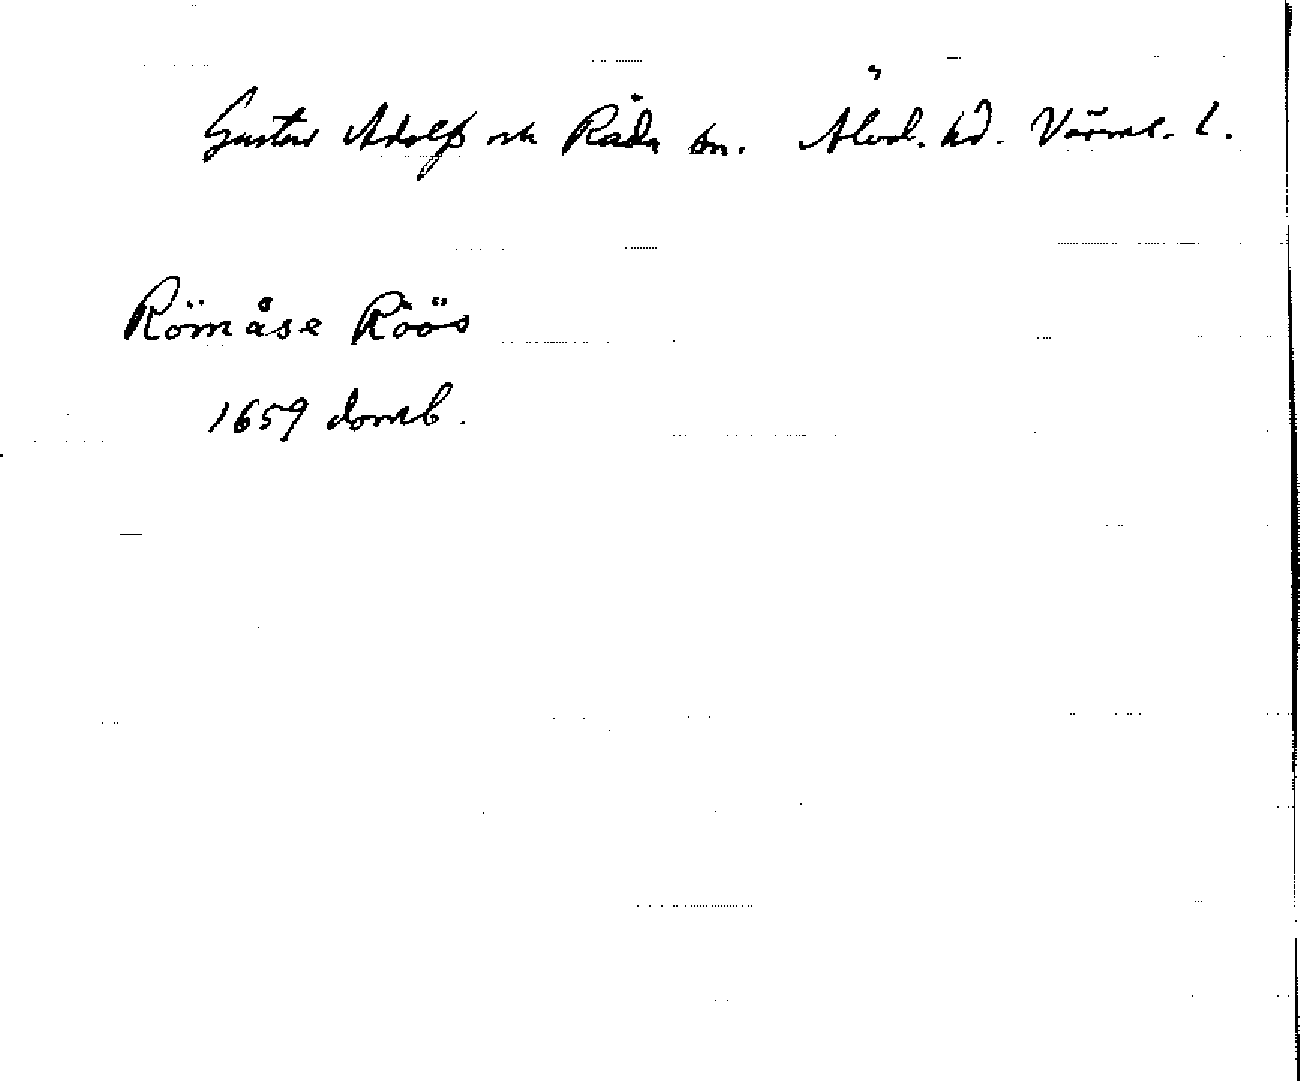 Gustav Adolfs och Råda sn. Älvd. hd. Värml. l.
Römåse Röös
1659 domb.